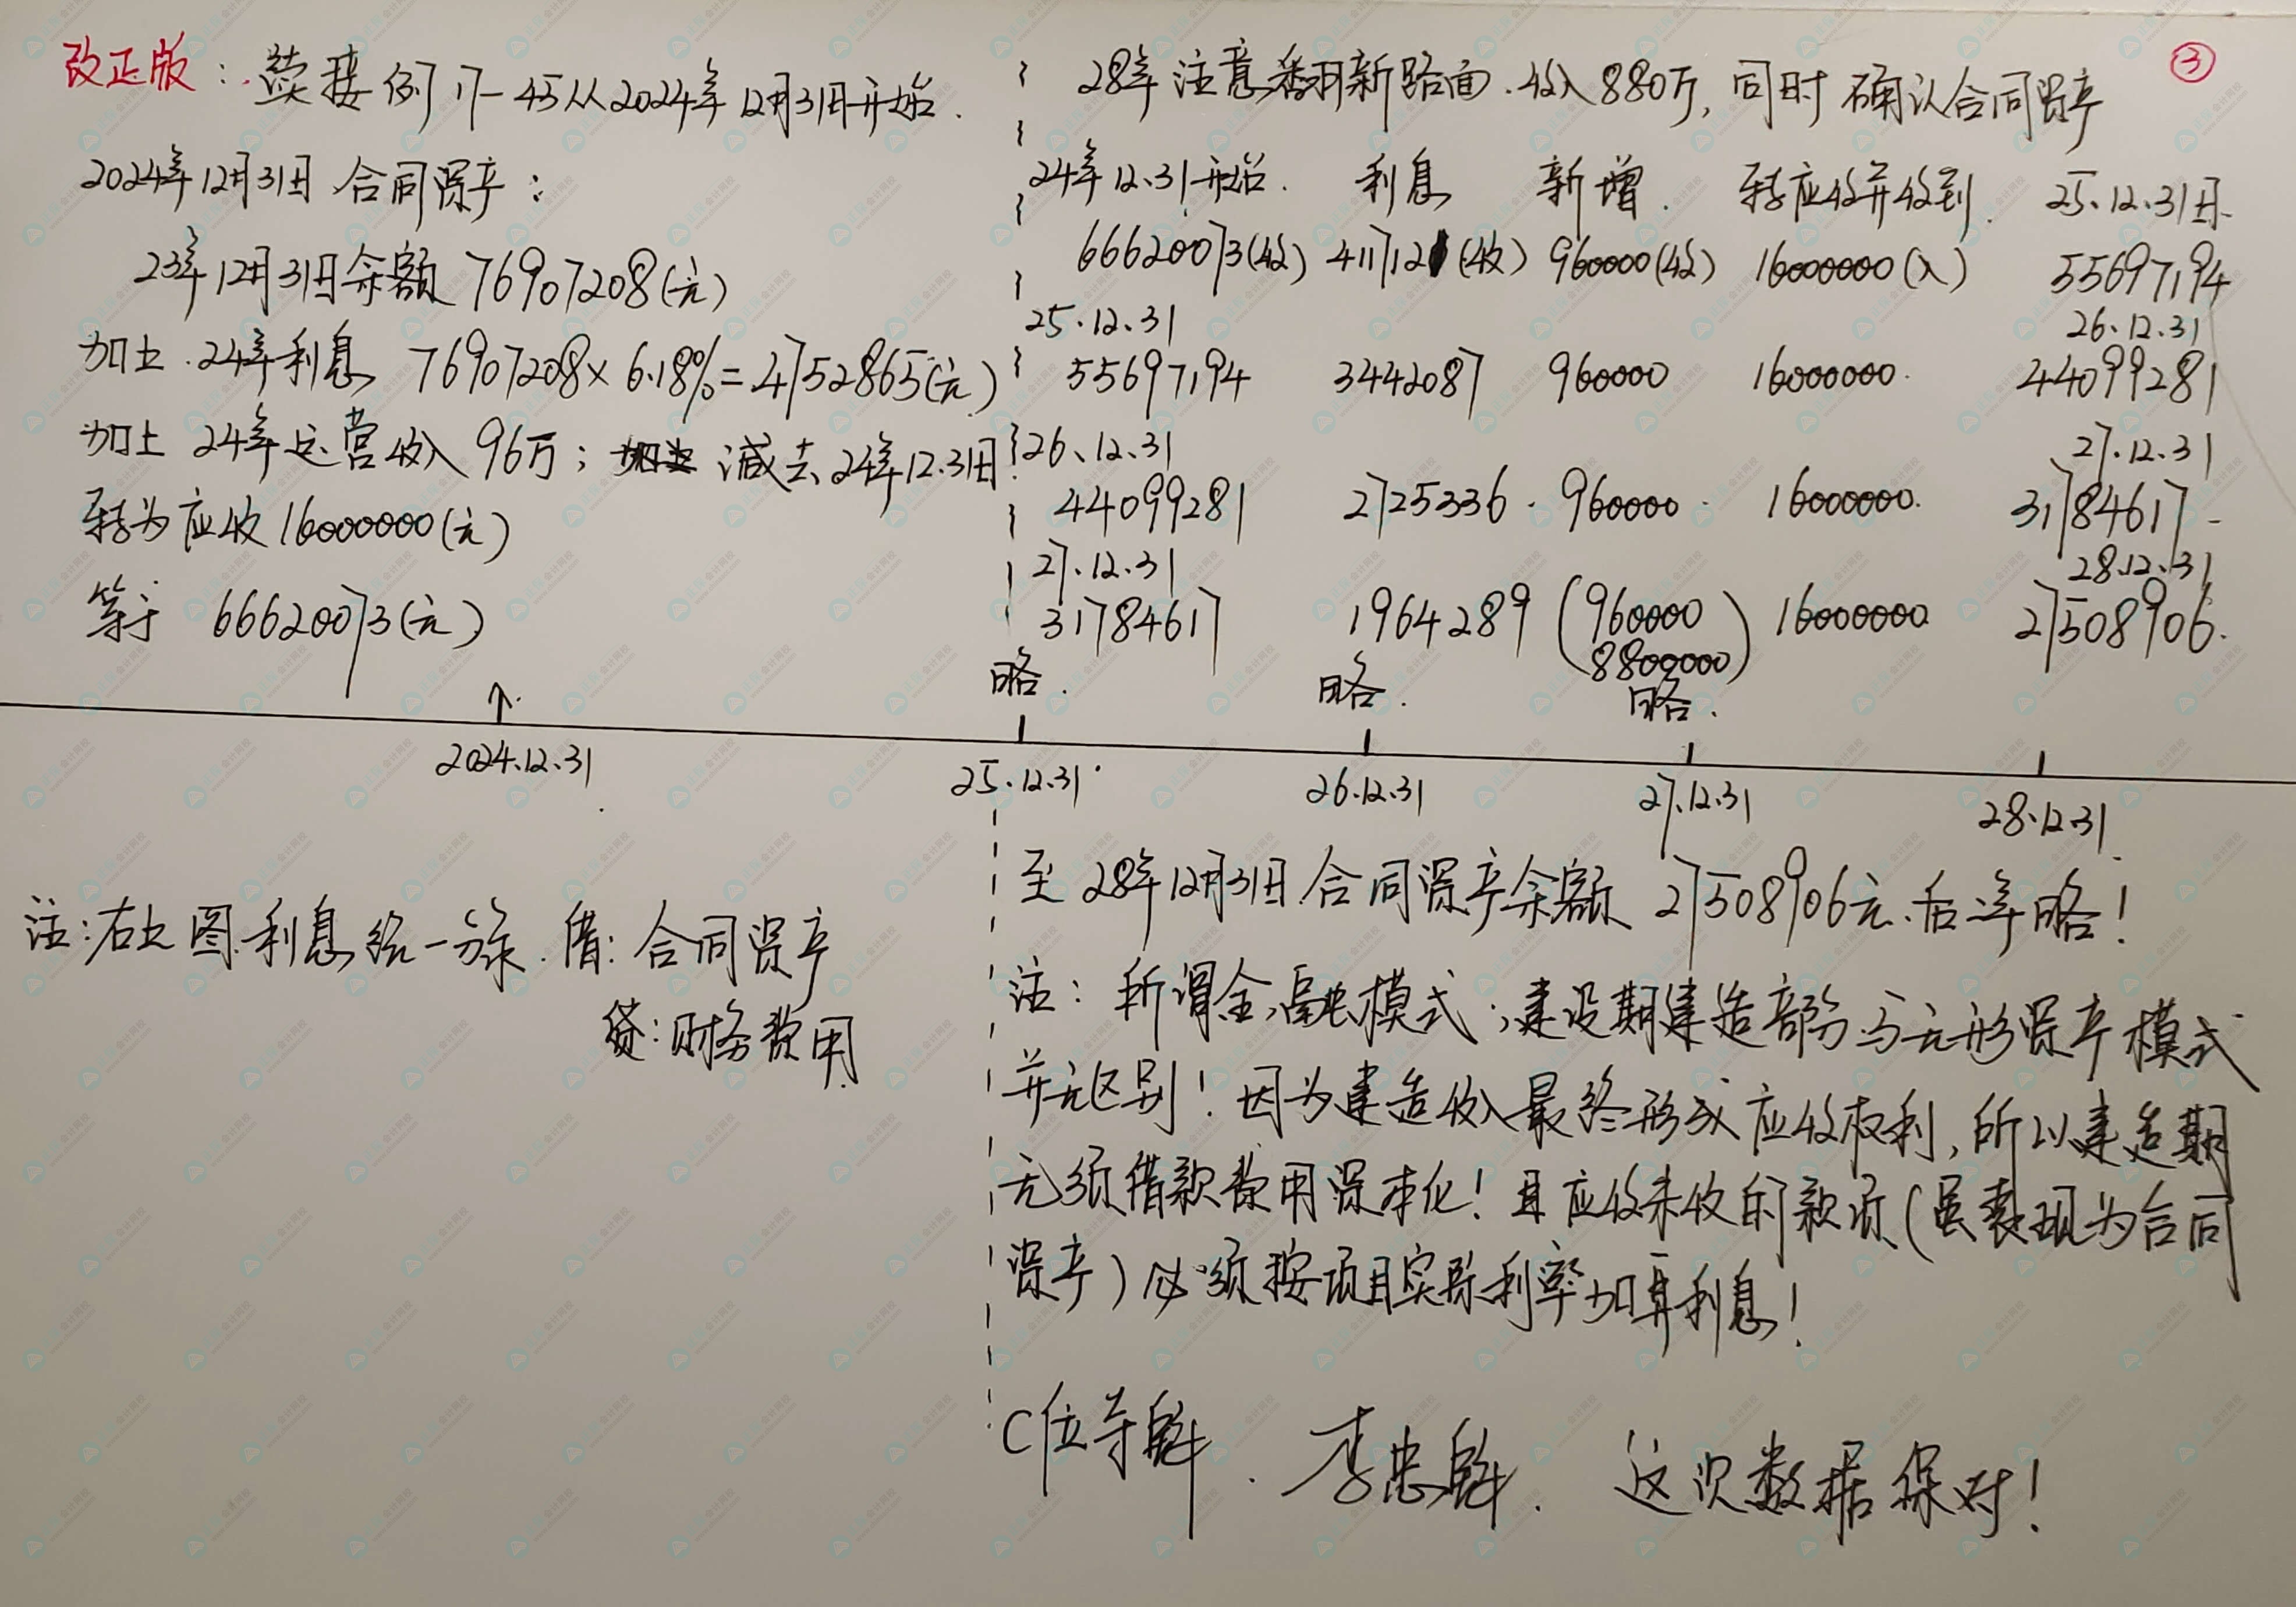 改正版：续接例17-45从2024年12月31日开始.
2024年12月31日合同资产：
23年12月31日余额76907208(元)
加上.24年利息 76907208×6.18%=4752865(元)
加上 24年运营收入96万；减去24年12.31日
转为应收16000000(元)
等于 66620073(元)
③
28年注意翻新路面.收入880万,同时确认合同资产
24年12.31开始. 利息 新增. 转应收并收到. 25.12.31日.
66620073(收) 4117121(收) 960000(收) 16000000(入) 55697194
25.12.31 26.12.31
55697194 3442087 960000 16000000. 44099281
26、12、31 27.12.31
44099281 2725336. 960000. 16000000. 31784617
27.12.31 28.12.31
31784617 1964289 (960000 8800000) 16000000 27508906.
略. 略. 略.
2024.12.31 25.12.31 26.12.31 27.12.31 28.12.31
注:右上图.利息统一分录.借:合同资产
贷:财务费用
至28年12月31日.合同资产余额27508906元.后年略!
注：所谓金融模式,建设期建造部分与无形资产模式
并无区别!因为建造收入最终形成应收权利,所以建造期
无须借款费用资本化!且应收未收的款项(虽表现为合同
资产)必须按项目实际利率加算利息!
C位 . 李忠 . 这次数据保对!
会计网校